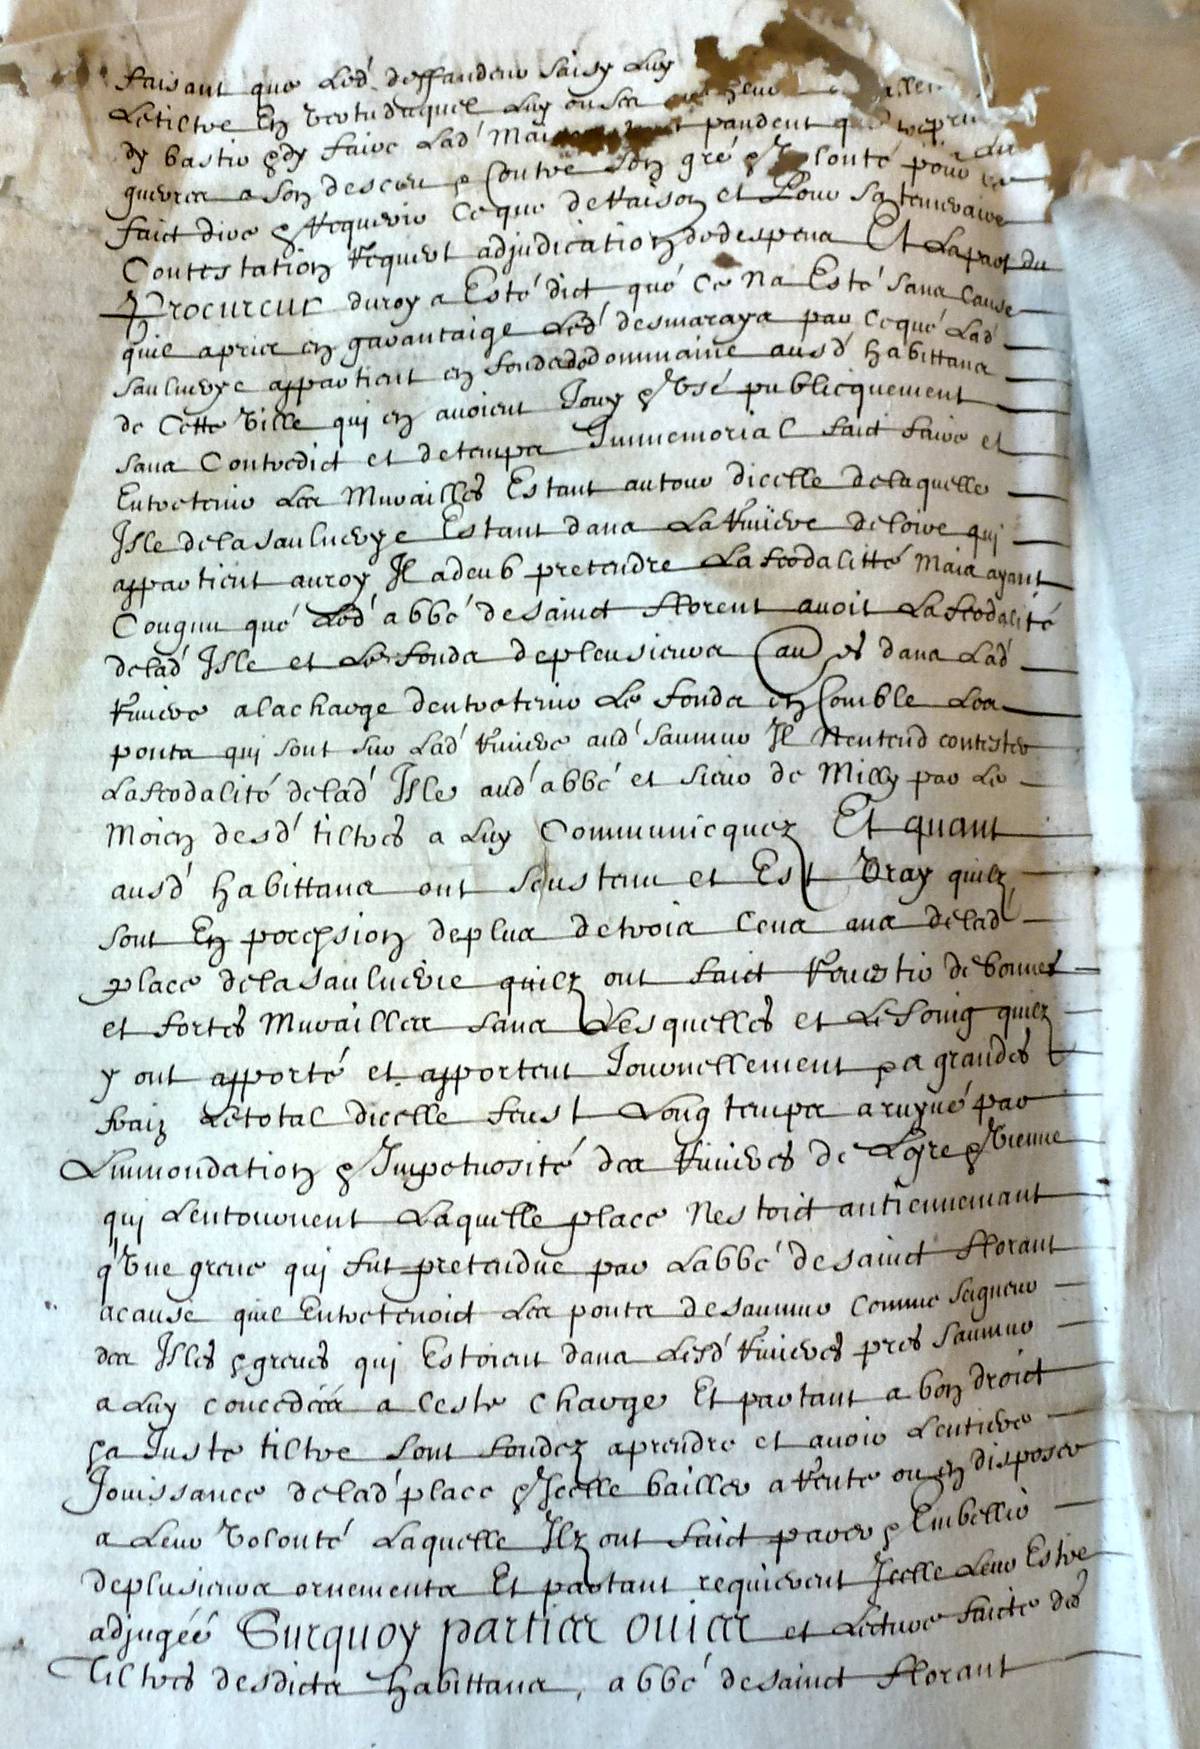 faisant que led' deffandeur saisy luy
le tiltre en vertu duquel luy ou ses
dy bastir & dy faire lad' pandent que
guerres a son desceu & contre son gré & volonté pour
faict dire & requerir ce que de raison et pour sa temeraire
contestation requert adjudication de despens Et la part du
Procureur du roy a esté dict que ce na esté sans cause
quil a pris en gavantaige led' desmarays par ce que lad'
saulnerye appartient en fonds de dommaine ausd' habittans
de cette ville qui en avoient jouy & usé publicquement
sans contredict et de temps immemorial faict faire et
entretenir les murailles estant autour dicelle de laquelle
Isle de la saulnerye estant dans la riviere de loire qui
appartient au roy Il a deub pretendre la feodalitté mais ayant
congnu que led' abbé de sainct florent avoit la feodalité
de lad' Isle et le fonds de pleusieurs dans lad'
riviere a la charge dentretenir le fonds en comble les
ponts qui sont sur lad' riviere aud' saumur Il nentend contester
la feodalité de lad' Isle aud' abbé et sieur de Milly par le
moien desd' tiltres a luy communicquez Et quant
ausd' habittans ont soustenu et est vray quilz
sont en possesion de plus de trois cens ans de lad'
place de la saulnerie quilz ont faict revestir de bonnes
et fortes murailles sans lesquelles et le soing quilz
y ont apporté et apportent journellement & a grandes
fraiz le total dicelle feust long temps a ruyné par
linnondation & impetuosité des rivieres de loyre & vienne
qui lentournent laquelle place nestoict antiennemant
q'une greve qui fut pretendue par labbé de sainct florant
a cause quil entretenoict les ponts de saumur comme seigneur
des Isles & greves qui estoient dans lesd' rivieres pres saumur
a luy concedées a ceste charge Et partant a bon droict
& a juste tiltre sont fondez a prendre et avoir lentiere
jouissance de lad' place & icelle bailler a rente ou en disposer
a leur volonté laquelle Ilz ont faict paver & embellir
de plusieurs ornements Et partant requierent Icelle leur estre
adjugée Surquoy parties ouies et lecture faicte des
tiltres desdicts habittans, abbé de sainct florant